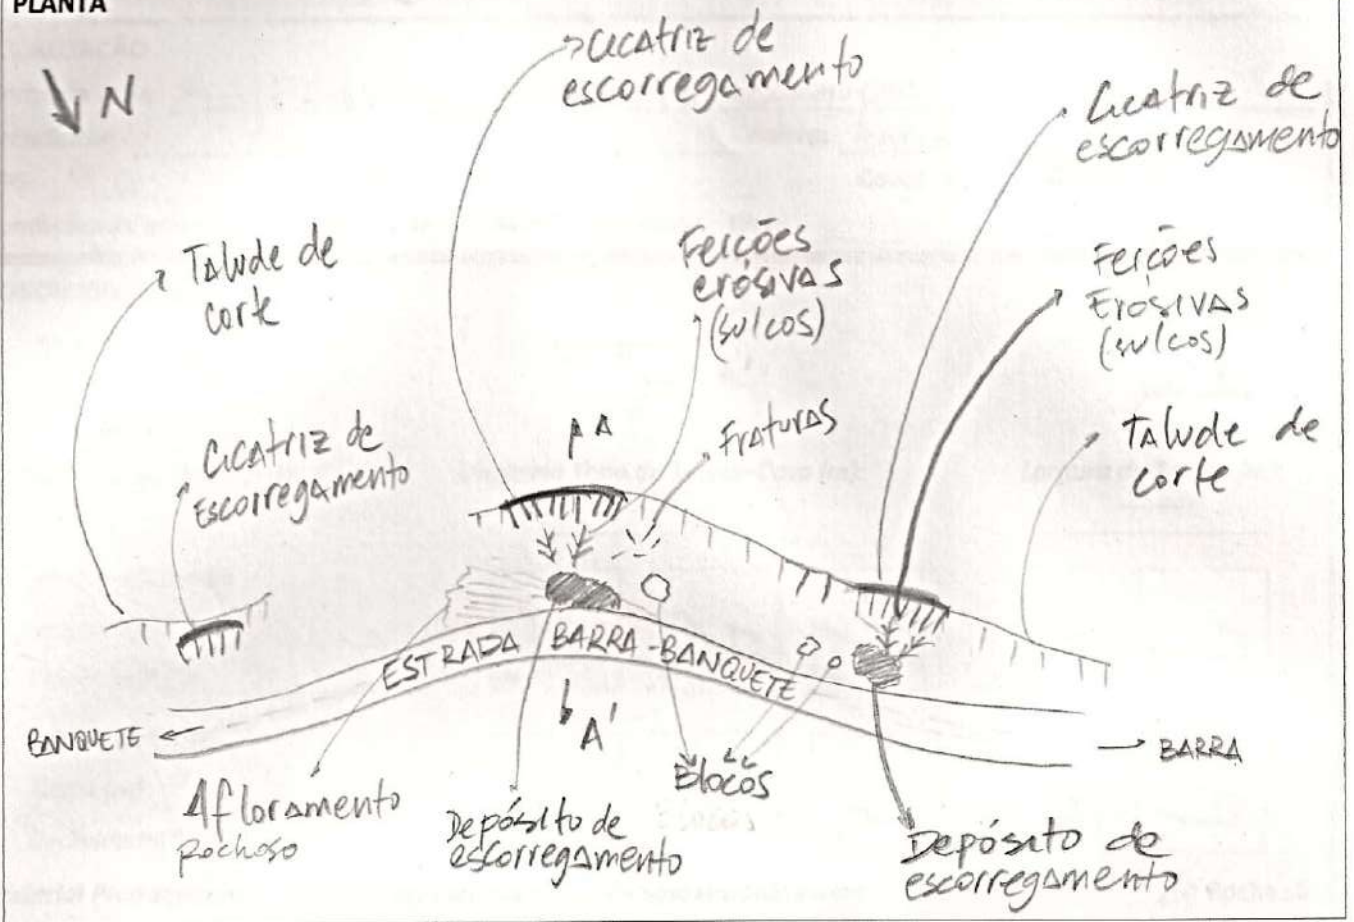 PLANTA
N
Cicatriz de
escorregamento
Cicatriz de
escorregamento
Talude de
corte
Feições
erosivas
(sulcos)
Feições
Erosivas
(sulcos)
A
Fraturas
Talude de
corte
Cicatriz de
Escorregamento
ESTRADA BARRA-BANQUETE
A'
BANQUETE
BARRA
Afloramento
rochoso
Depósito de
escorregamento
Blocos
Depósito de
escorregamento